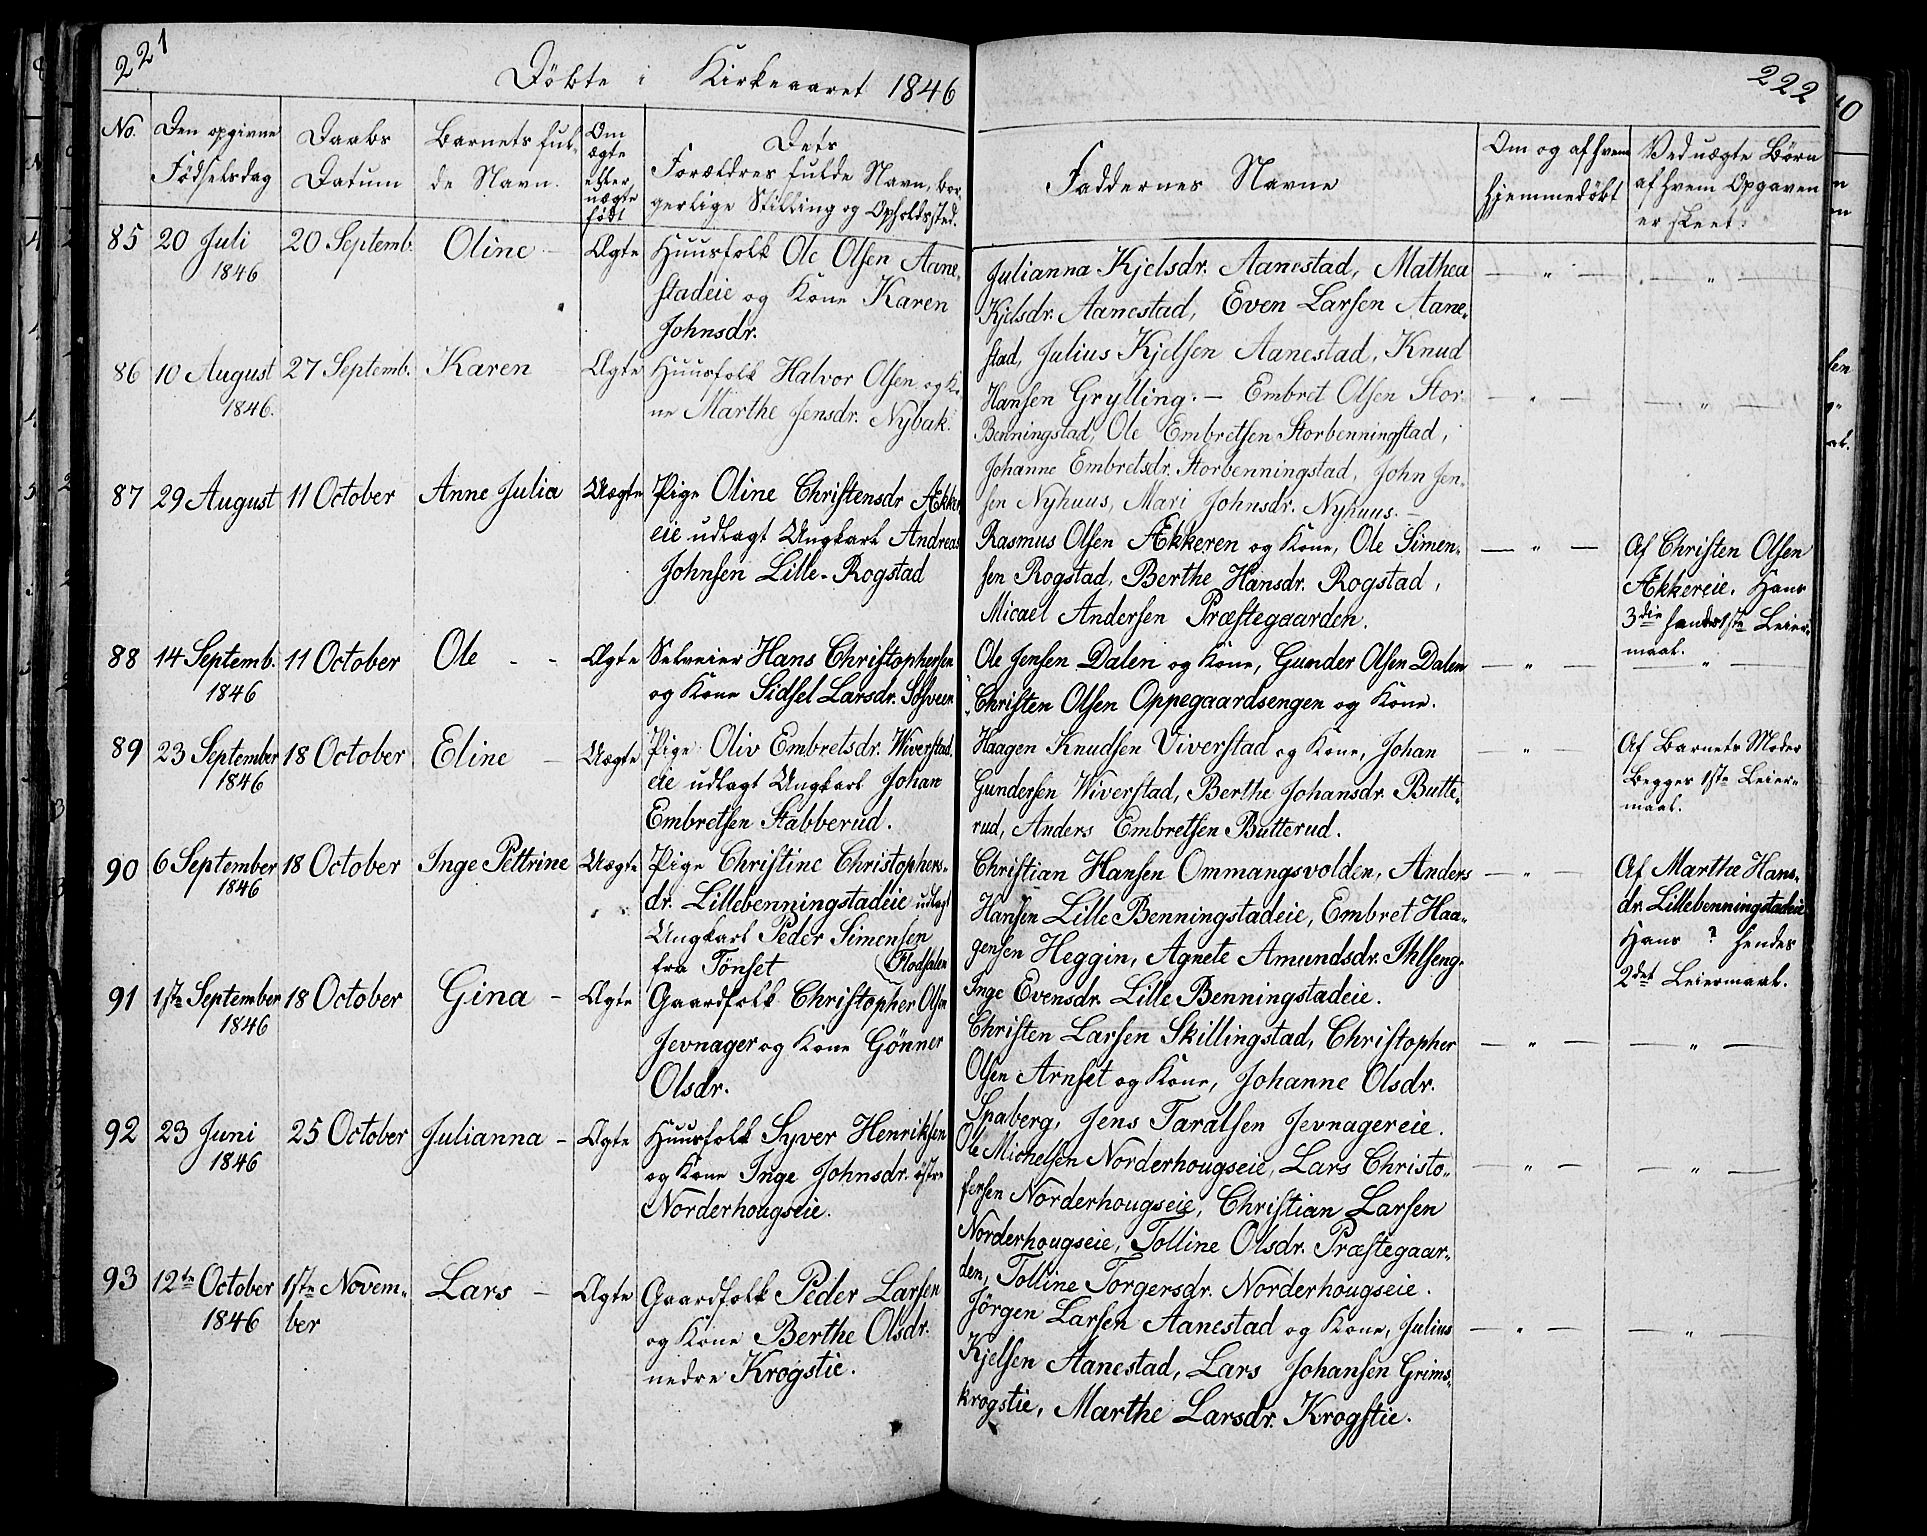 221
Döbte i Kirkeaaret 1846
No.
Den opgivne Födselsdag
Daabs Datum
Barnets fulde Navn.
Om ægte eller uægte födt
Dets Forældres fulde Navn, borgerlige Stilling og Opholdssted.
85
20 Juli
1846
20 Septemb.
Oline
Ægte
Huusfolk Ole Olsen Aane-
stadeie og Kone Karen
Johnsdr.
86
10 August
1846.
27 Septemb.
Karen
Ægte
Huusfolk Halvor Olsen og Ko-
ne Marthe Jensdr. Nybak.
87
29 August
11 October
Anne Julia
Uægte
Pige Oline Christensdr Ækker
eie udlagt Ungkarl Andreas
Johnsen Lille-Rogstad
88
14 Septemb.
1846
11 October
Ole - -
Ægte
Selveier Hans Christophersen
og Kone Sidsel Larsdr.
89
23 September
1846
18 October
Eline
Uægte
Pige Oliv Embretsdr. Wiverstad
eie udlagt Ungkarl Johan
Embretsen Stabberud.
90
6 September
1846
18 October
Inge Pettrine
Uægte
Pige Christine Christophers-
dr. Lillebenningstadeie udlagt
Ungkarl Peder Simensen
fra Tönset (Flodsalen
91
1ste September
1846
18 October
Gina -
Ægte
Gaardfolk Christopher Olsen
Jevnager og Kone Gönner
Olsdr.
92
23 Juni
1846
25 October
Julianna -
Ægte
Huusfolk Syver Henriksen
og Kone Inge Johnsdr. östre
Norderhougseie.
93
12te October
1846
1ste Novem-
ber
Lars -
Ægte
Gaardfolk Peder Larsen
og Kone Berthe Olsdr.
nedre Krogstie.
222
Faddernes Navne
Om og af hvem hjemmedöbt
Ved uægte Börn af hvem Opgaven er skeet.
Julianna Kjelsdr. Aanestad, Mathea
Kjelsdr. Aanestad, Even Larsen Aane-
stad, Julius Kjelsen Aanestad, Knud
Hansen Grylling. - Embret Olsen Stor
Benningstad, Ole Embretsen Storbenningstad,
Johanne Embretsdr. Storbenningstad, John Jen-
sen Nyhuus, Mari Johnsdr. Nyhuus. -
Rasmus Olsen Ækkeren og Kone, Ole Simen-
sen Rogstad, Berthe Hansdr. Rogstad,
Micael Andersen Præstegaarden.
Af Christen Olsen
Ækkereie. Hans
3die hendes 1ste Leier-
maal.
Ole Jensen Dalen og Kone, Gunder Olsen Dalen
Christen Olsen Oppegaardsengen og Kone.
Haagen Knudsen Viverstad og Kone, Johan
Gundersen Wiverstad, Berthe Johansdr. Butte-
rud, Anders Embretsen Butterud.
Af Barnets Moder
Begges 1ste Leier-
maal.
Christian Hansen Ommangsvolden, Anders
Hansen Lille Benningstadeie, Embret Haa-
gensen Heggin, Agnete Amundsdr. Ihlseng.
Inge Evensdr. Lille Benningstadeie.
Af Marthe Hans-
dr. Lillebenningstadeie
Hans ? hendes
2det Leiermaal.
Christen Larsen Skillingstad, Christopher
Olsen Arnset og Kone, Johanne Olsdr.
Spaberg, Jens Taralsen Jevnagereie.
Ole Michelsen Norderhougseie, Lars Christo-
fersen Norderhougseie, Christian Larsen
Norderhougseie, Tolline Olsdr. Præstegaar-
den, Tolline Torgersdr. Norderhougseie.
Jörgen Larsen Aanestad og Kone, Julius
Kjelsen Aanestad, Lars Johansen Grims-
krogstie, Marthe Larsdr. Krogstie.